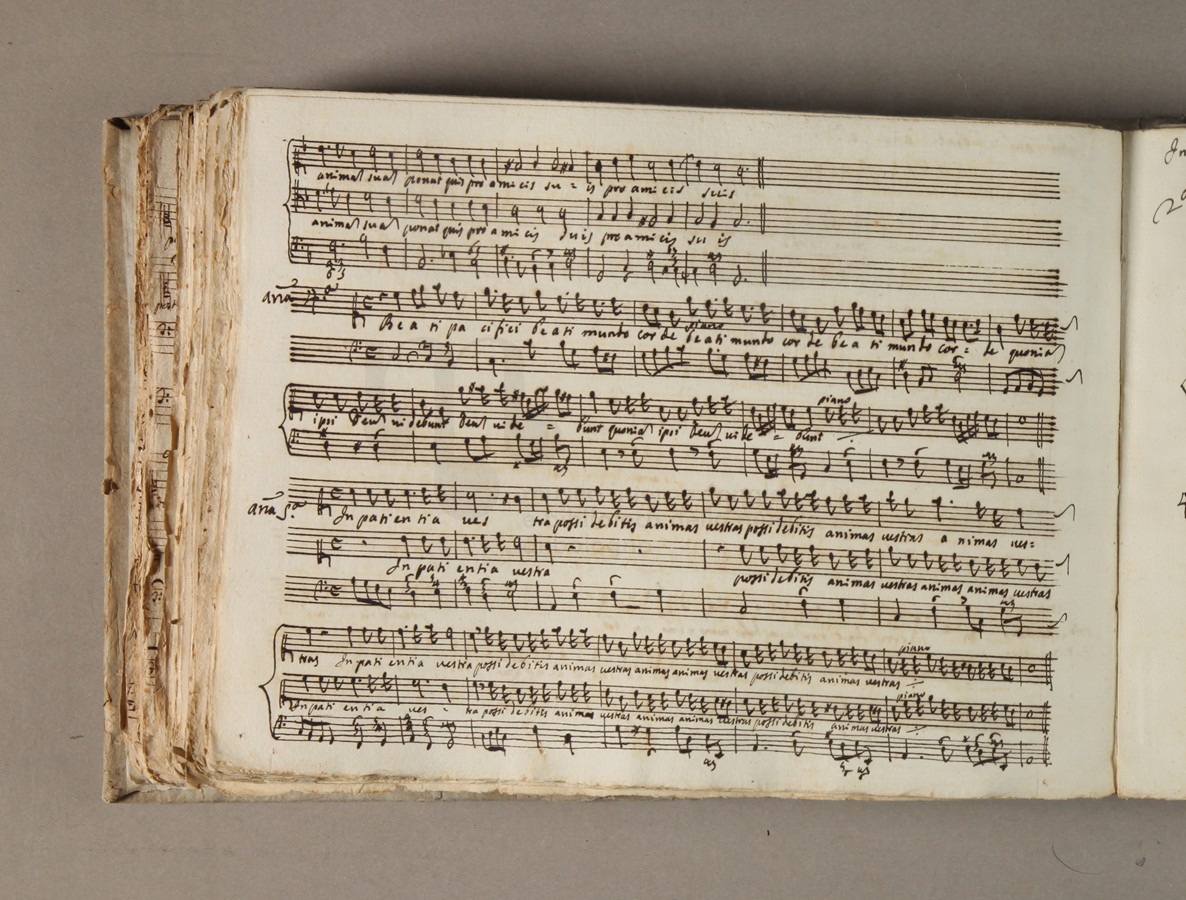 animaʃ suaʃ ponat quis pro amicis su = is pro amicis suis
animaʃ suaʃ ponat quis pro amicis suis pro amicis su is
Be a ti pa cifici beati mundo corde beati mundo cor de be a ti mundo cor = de quoniaʃ
piano
ipsi Deuʃ videbunt Deuʃ vi de = bunt quoniaʃ ipsi Deuʃ vi de = bunt
piano
In patien tia ves tra possidebitis animas vestras possidebitis animas vestras a nimas ves=
In pati entia vestra possidebitis animas vestras animas animas vestras
piano
tras In pati entia vestra possidebitis animas vestras animas animas vestras possidebitis animas vestras
piano
In pati en tia ves - tra possidebitis animas vestras animas animas vestras possidebitis animas vestras